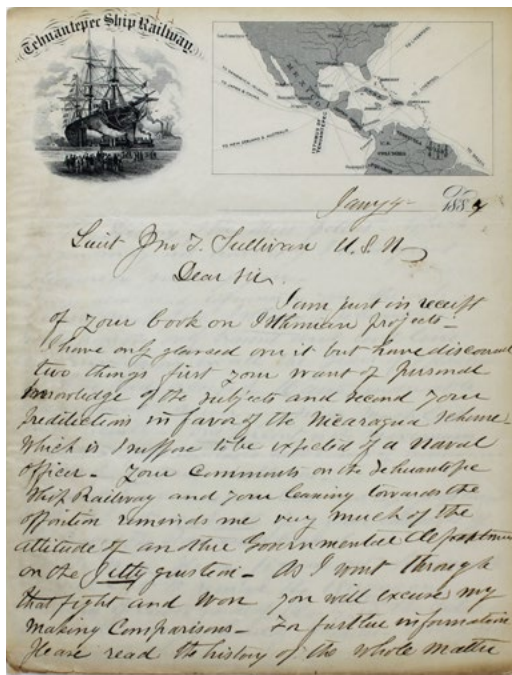 Tehuantepec Ship Railway.
MEXICO
TO LIVERPOOL
TO NEW ZEALAND & AUSTRALIA
TO BRAZIL
U.S.
COLUMBIA
Jany 4 1884
Lieut Jno T. Sullivan U.S.N
Dear Sir,
I am just in receipt
of your book on Isthmian projects -
I have only glansed on it but have discovered
two things first your want of personal
knowledge of the subjects and second your
predilections in favor of the Nicaragua scheme -
which is I suppose to be expected of a naval
officer - Your comments on the Tehuantepec
Ship Railway and your leaning towards the
opposition reminds me very much of the
attitude of another Governmental Department
on the Jetty question - As I went through
that fight and won you will excuse my
making comparisons - For further information
Please read the history of the whole matter